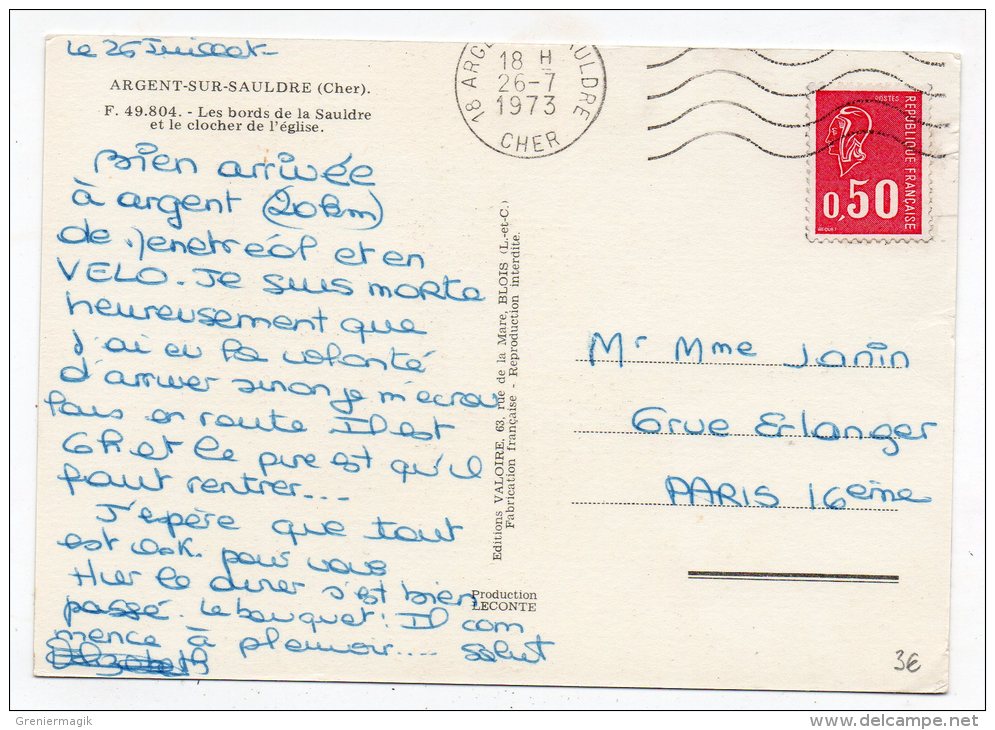 Le 26 Juillet
ARGENT-SUR-SAULDRE (Cher).
F. 49.804. - Les bords de la Sauldre
et le clocher de l'église.
Bien arrivée
à argent (20km)
de et en
VELO. Je suis morte
heureusement que
j'ai eu la volonté
d'arriver sinon je m'écrou
lais en route Il est
6h et le pire est qu'il
faut rentrer...
J'espère que tout
est o.k. pour vous
Hier le diner s'est bien
passé. Le bouquet : Il com
mence à pleuvoir.... Salut
Elizabeth
18 H
26-7
1973
18 ARGENT SAULDRE
CHER
POSTES
REPUBLIQUE FRANÇAISE
0,50
BEQUET
Editions VALOIRE, 63, rue de la Mare, BLOIS (L.-et-C.)
Fabrication française - Reproduction interdite.
Production
LECONTE
Mr Mme Janin
6 rue Erlanger
PARIS 16eme
3€
Greniermagik
www.delcampe.net